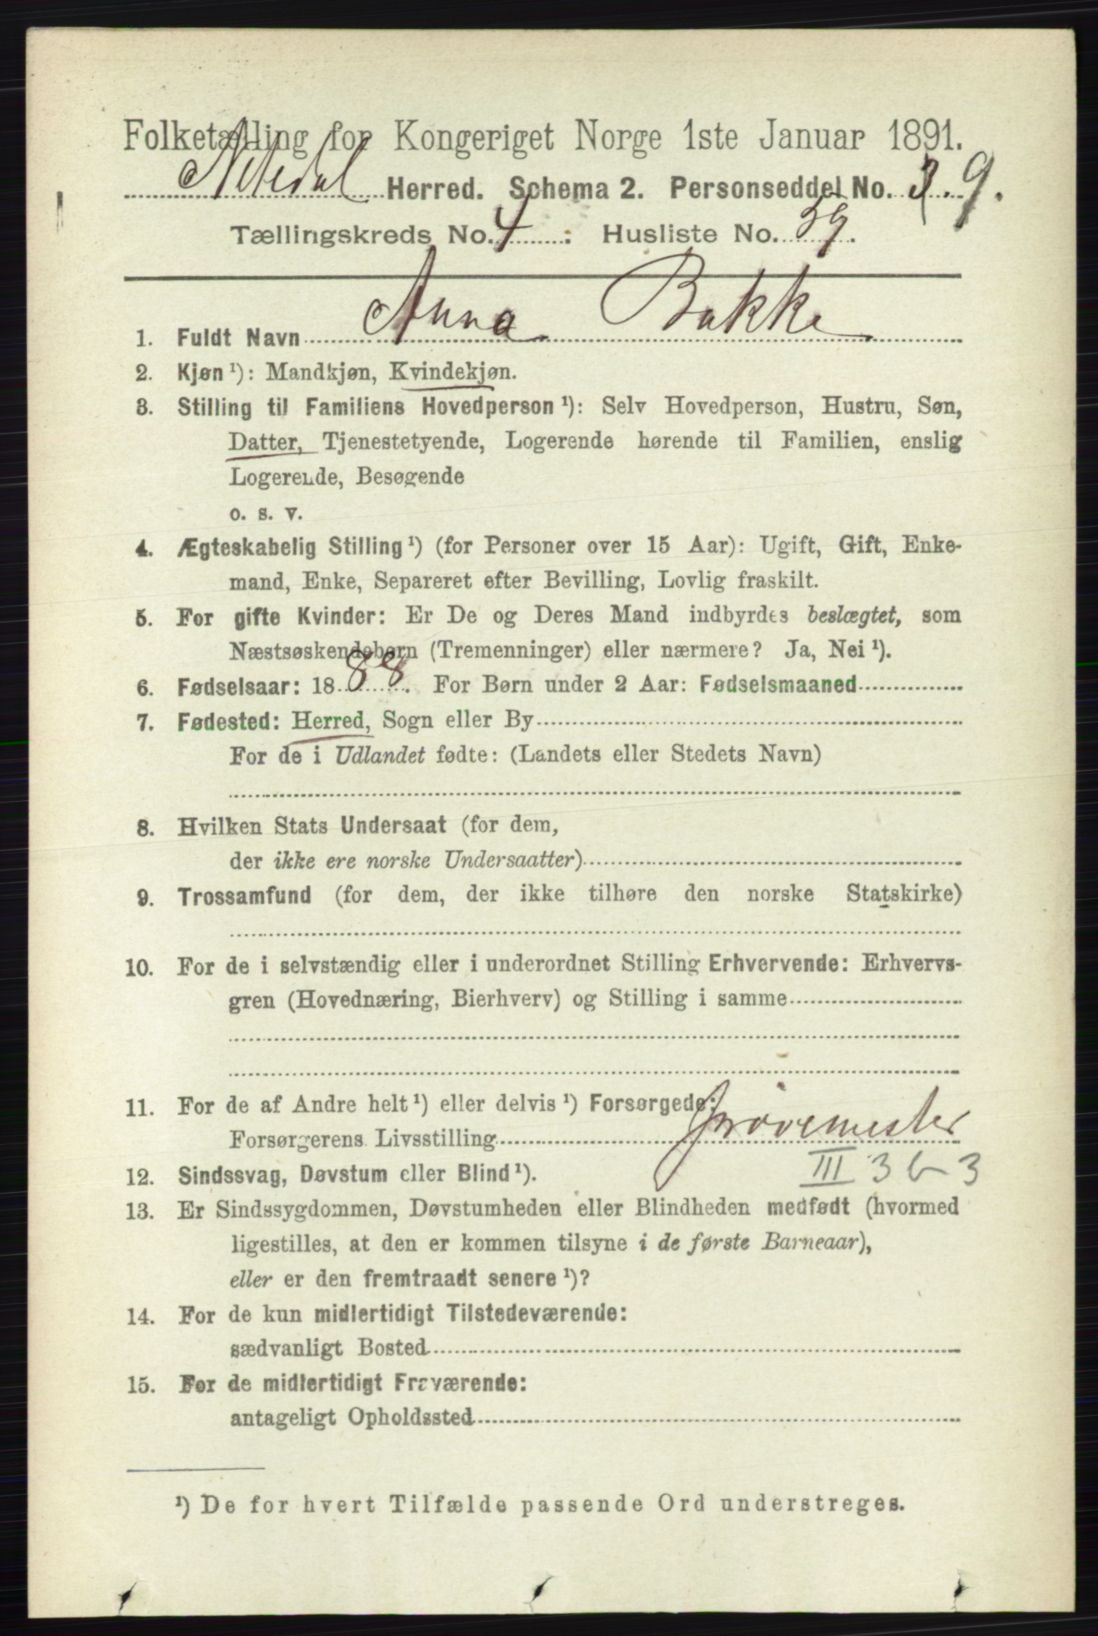 Folketælling for Kongeriget Norge 1ste Januar 1891.
Nitedal Herred. Schema 2. Personseddel No. 9.
Tællingskreds No. 4. Husliste No. 39.
1. Fuldt Navn Anna Bakke
2. Kjøn ¹): Mandkjøn, Kvindekjøn.
3. Stilling til Familiens Hovedperson ¹): Selv Hovedperson, Hustru, Søn,
Datter, Tjenestetyende, Logerende hørende til Familien, enslig
Logerende, Besøgende
o. s. v.
4. Ægteskabelig Stilling ¹) (for Personer over 15 Aar): Ugift, Gift, Enke-
mand, Enke, Separeret efter Bevilling, Lovlig fraskilt.
5. For gifte Kvinder: Er De og Deres Mand indbyrdes beslægtet, som
Næstsøskendebørn (Tremenninger) eller nærmere? Ja, Nei ¹).
6. Fødselsaar: 1888. For Børn under 2 Aar: Fødselsmaaned
7. Fødested: Herred, Sogn eller By
For de i Udlandet fødte: (Landets eller Stedets Navn)
8. Hvilken Stats Undersaat (for dem,
der ikke ere norske Undersaatter)
9. Trossamfund (for dem, der ikke tilhøre den norske Statskirke)
10. For de i selvstændig eller i underordnet Stilling Erhvervende: Erhvervs-
gren (Hovednæring, Bierhverv) og Stilling i samme
11. For de af Andre helt ¹) eller delvis ¹) Forsørgede:
Forsørgerens Livsstilling
12. Sindssvag, Døvstum eller Blind ¹). III 363
13. Er Sindssygdommen, Døvstumheden eller Blindheden medfødt (hvormed
ligestilles, at den er kommen tilsyne i de første Barneaar),
eller er den fremtraadt senere ¹)?
14. For de kun midlertidigt Tilstedeværende:
sædvanligt Bosted
15. For de midlertidigt Fraværende:
antageligt Opholdssted
¹) De for hvert Tilfælde passende Ord understreges.